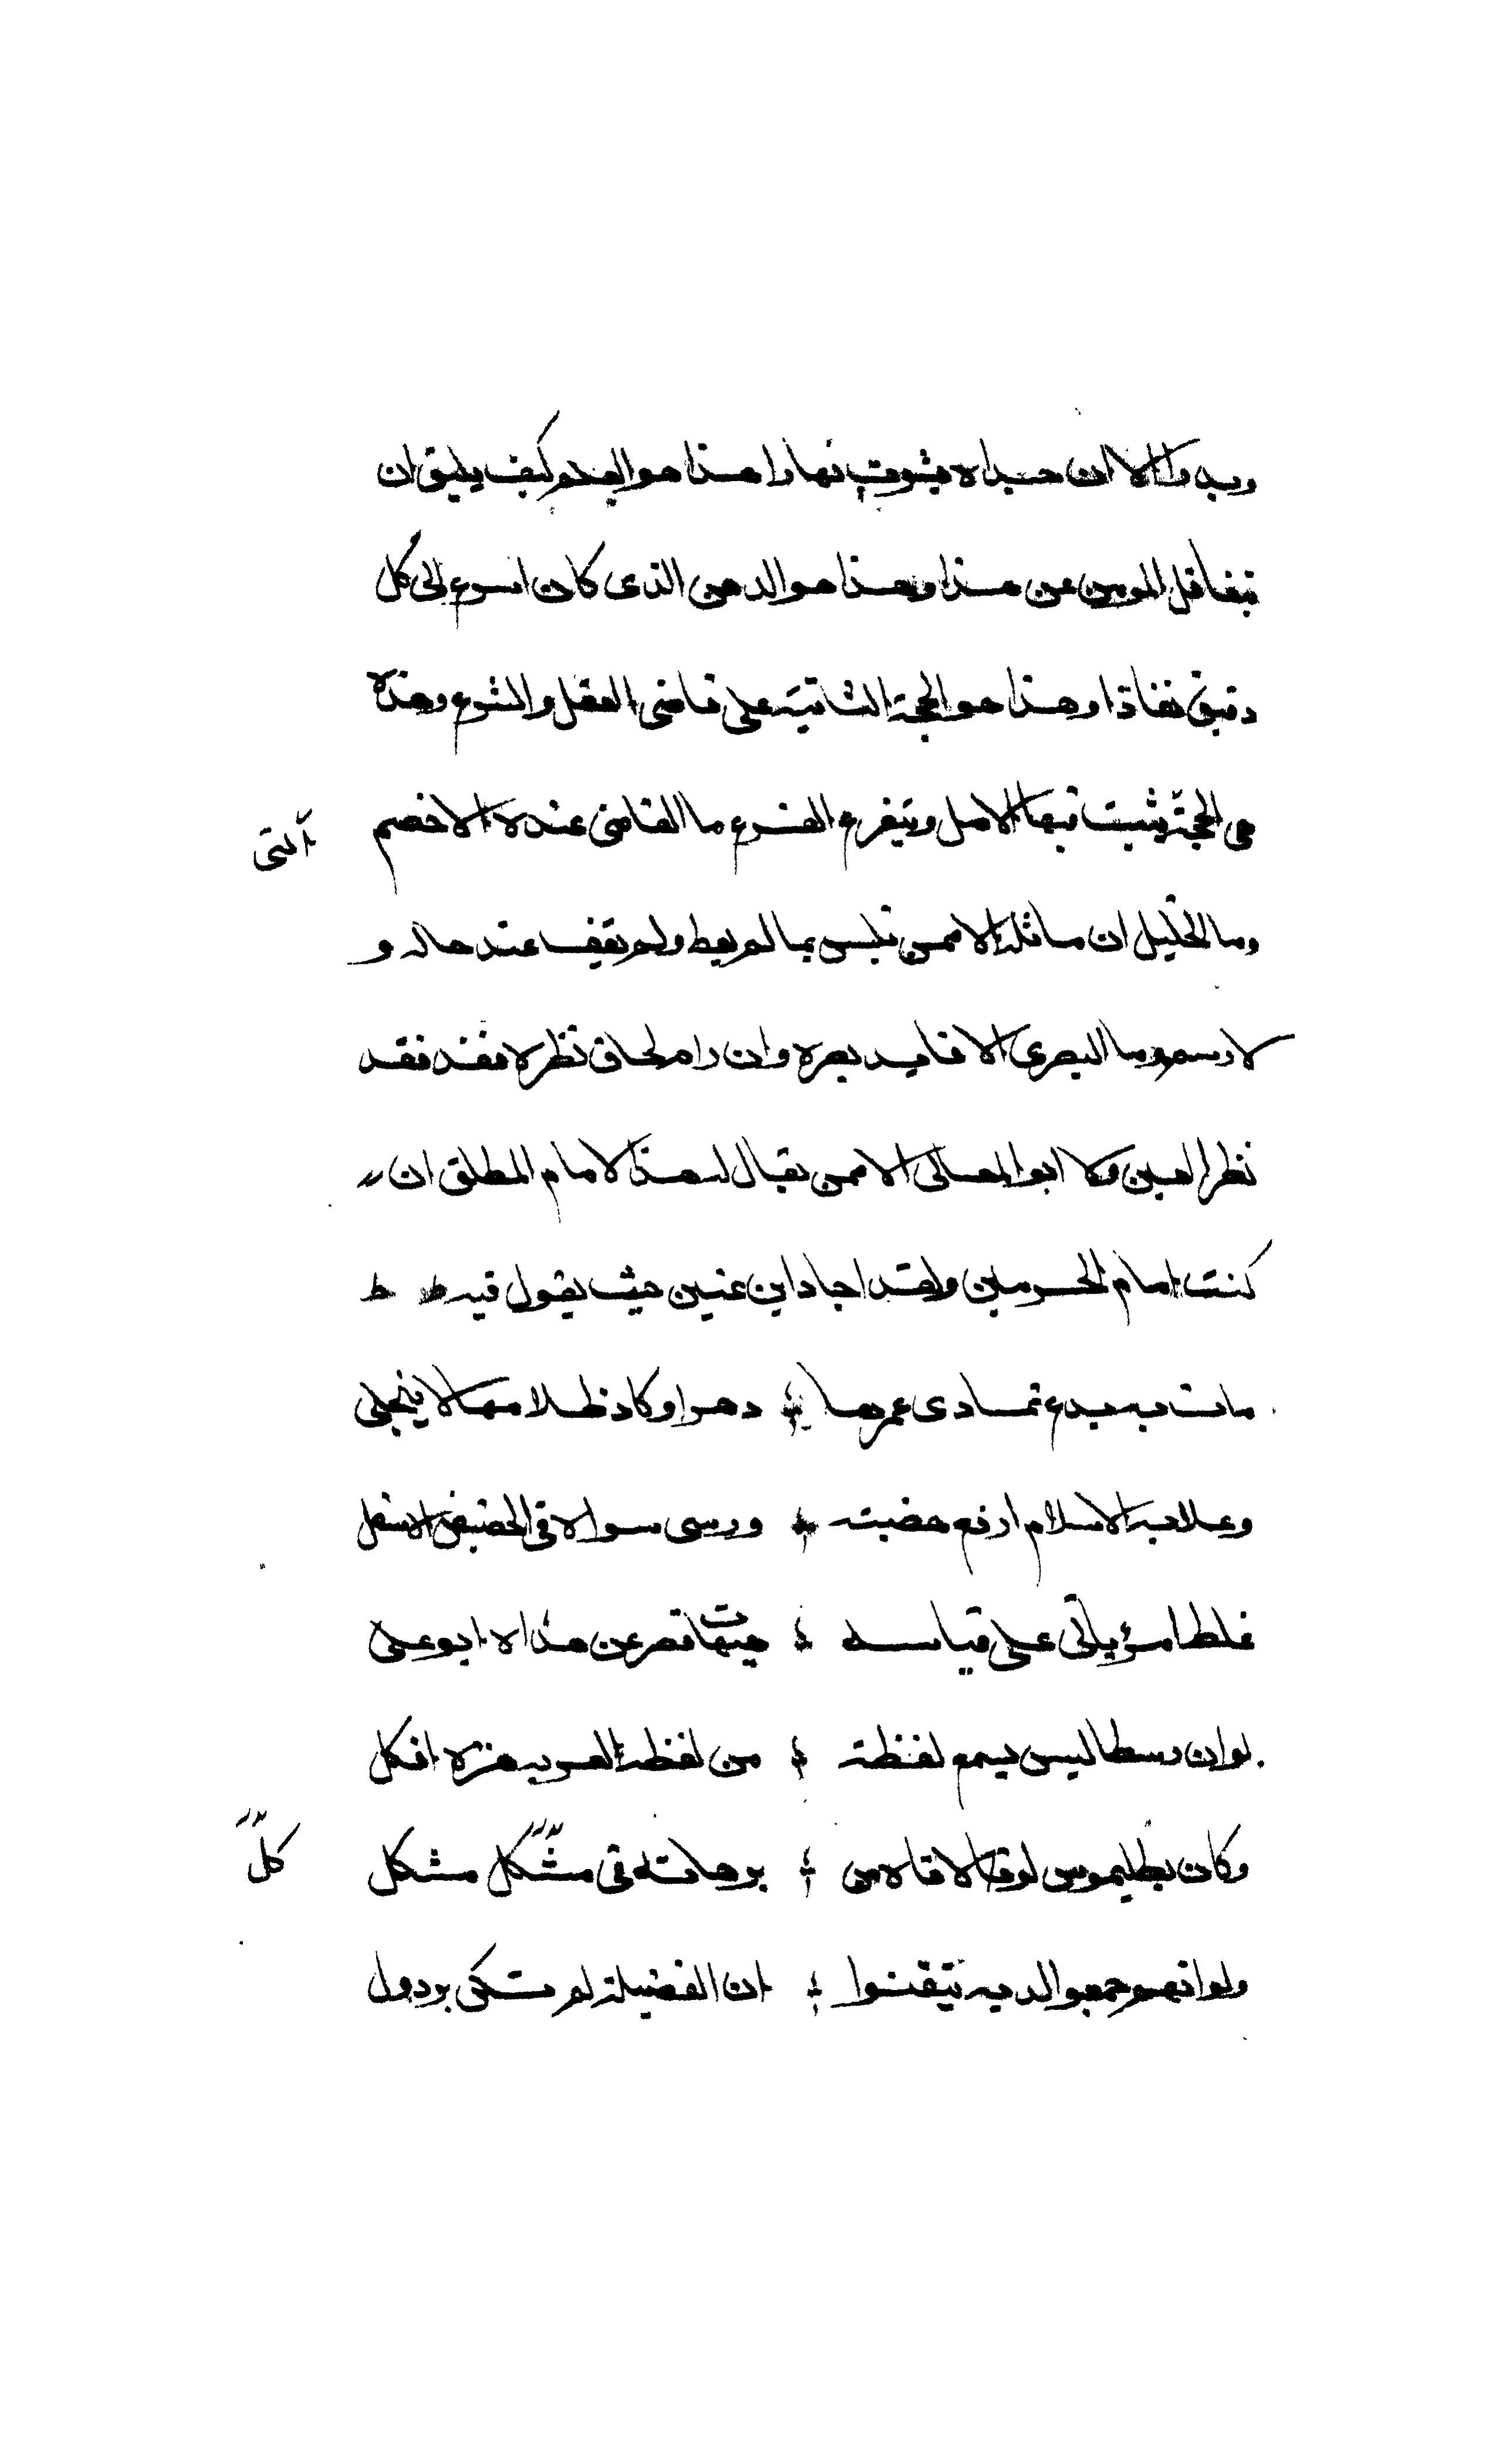 وبدرا الا ان حداه يشوب نهارا هذا هو العدم كيف يليق ان
يتغافل المومن عن هذا وهذا هو الدهن الذى كان اسرع الى كل
دقيق نفاذا وهذا هو الحجة الثابتة على قاضى العقل والشرع وهذه
هى الحجة يثبت بها الاصل ويتفرع الفرع ما القاضى عنده الا خصم
التى
وما الخليل ان ماثله الا ممن تلبس بما لم يعط ولم يقف عند حاله و
لا رسمه وما البصرى الا فاسد بصره وان رام لحاق نظره لا فقد فقد
نظر العين ولا ابو المعالى الا ممن يقال له هذا الامام المطلق ان
كنت امام الحرمين ولقد اجاد ابن عنين حيث يقول فيه
ماتت به بدع تمادى عمرها دهرا وكاد ظلامها لا ينجلى
وعلا به الاسلام ارفع هضبة ورسى سواه فى الحضيض الاسفل
غلط امرؤ بابى على قياسه هيهات قصر عن هذا الا ابو على
لو ان رسطاليس يسمع لفظة من لفظه لعرته هزة افكل
وكان بطليموس لو قد لاقاه من برهانه فى مشكل مشكل
كل
ولو انهم جمعوا لديه تيقنوا ان الفضيلة لم تكن بردول